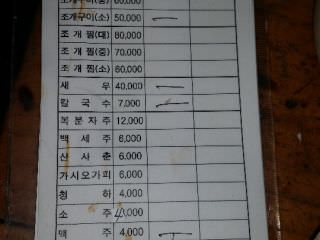 조개구이(중) 60,000
조개구이(소) 50,000
조개찜(대) 80,000
조개찜(중) 70,000
조개찜(소) 60,000
새우 40,000
칼국수 7,000
복분자주 12,000
백세주 6,000
산사춘 6,000
가시오가피 6,000
청하 4,000
소주 4,000
맥주 4,000